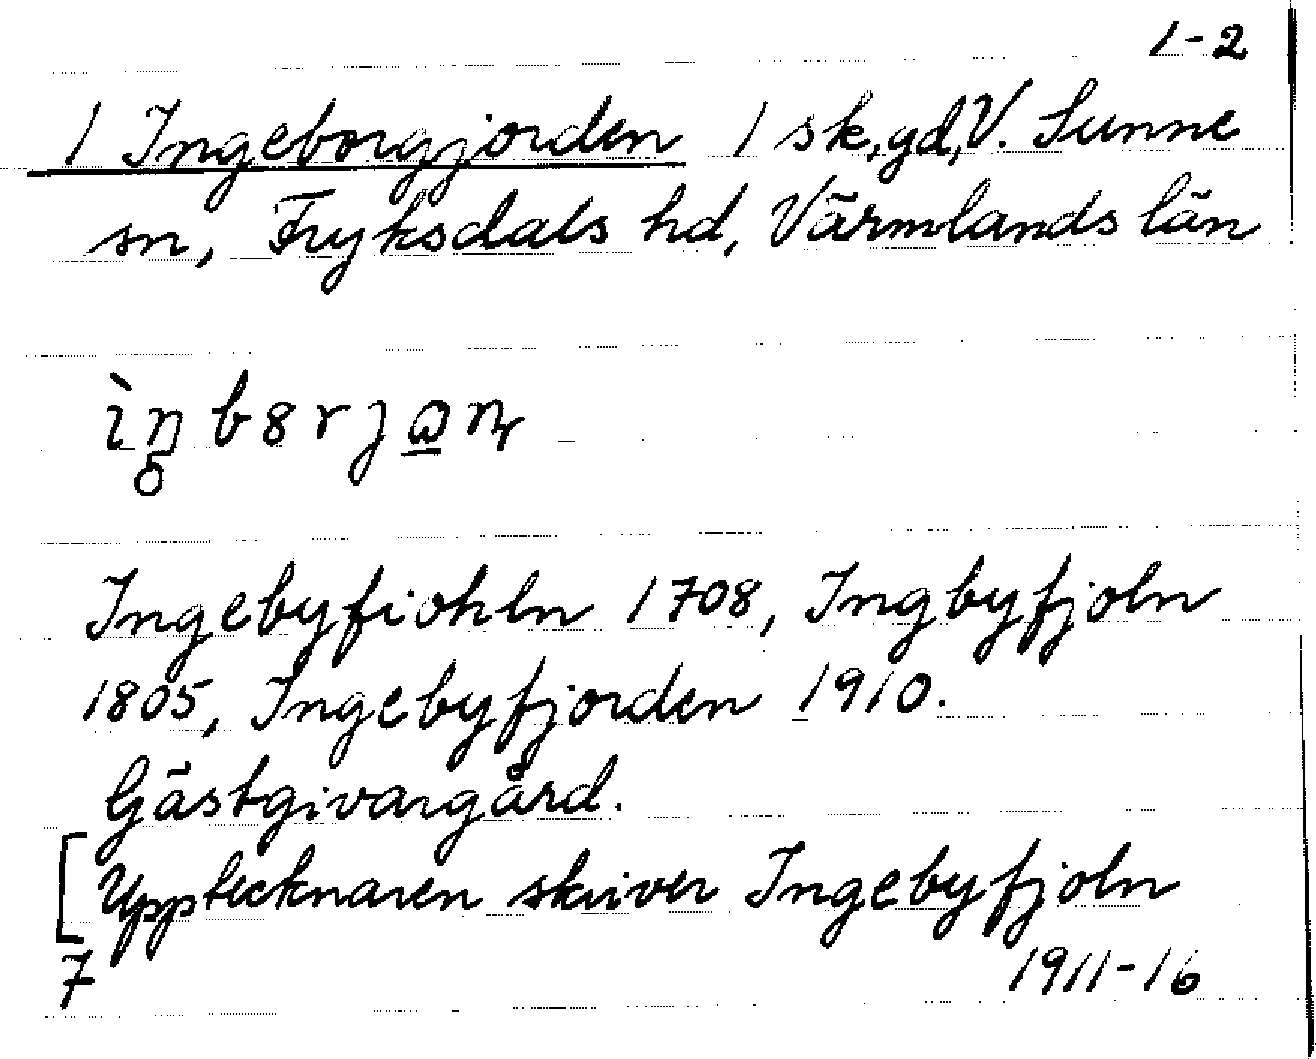 1-2
1 Ingeborgjorden 1 sk, gd, V. Sunne
sn, Fryksdals hd, Värmlands län
Ingebyfiohln 1708, Ingbyfjoln
1805, Ingebyfjorden 1910.
Gästgivargård.
[Upptecknaren skriver Ingebyfjoln
7 1911-16